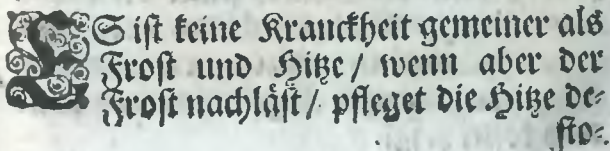 ES iſt keine Kranckheit gemeiner als
Froſt und Hitze / wenn aber der
Froſt nachläſt / pfleget die Hitze de⸗
ſto⸗